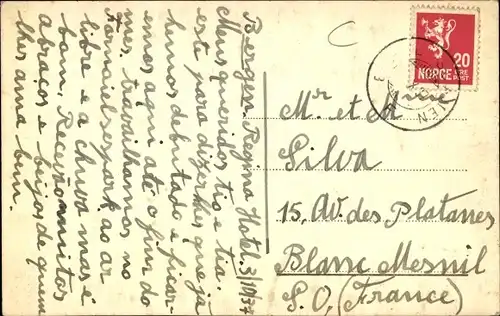 Bergen. Regina Hotel. 3/10/37
Meus queridos tio e tia.
este para dizer-lhes que já
temos debutado e ficar-
emos aqui até o fim do
mes. travalhamos no
ao ar
libre e a chuva mas é
bom. Recevem muitos
abraços e beijos de quem
lhes ama bem.
C
NORGE 20 ØRE
POST
Mr et
Silva
15, Av. des Platanes
Blanc Mesnil
S. O. (France)